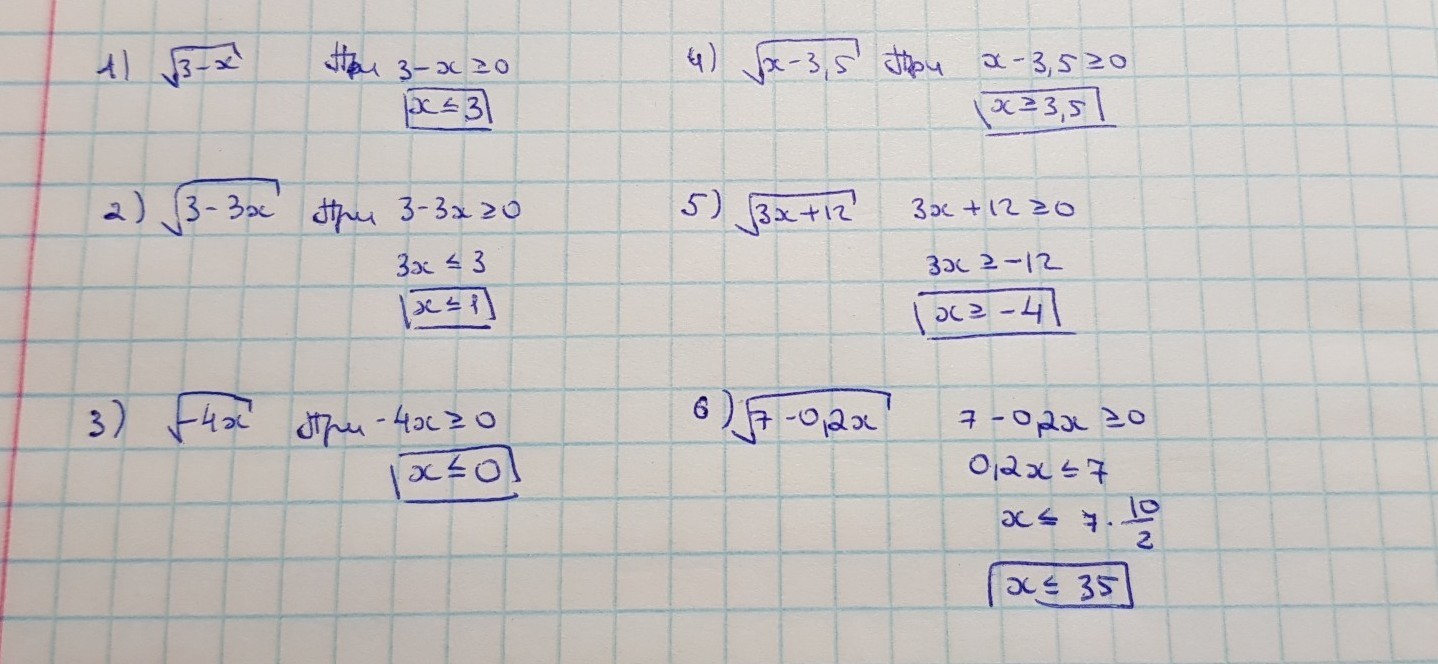 1) √3-x при 3-x≥0
x≤3
2) √3-3x при 3-3x≥0
3x≤3
x≤1
3) √-4x при -4x≥0
x≤0
4) √x-3,5 при x-3,5≥0
x≥3,5
5) √3x+12 3x+12≥0
3x≥-12
x≥-4
6) √7-0,2x 7-0,2x≥0
0,2x≤7
x≤7·10/2
x≤35